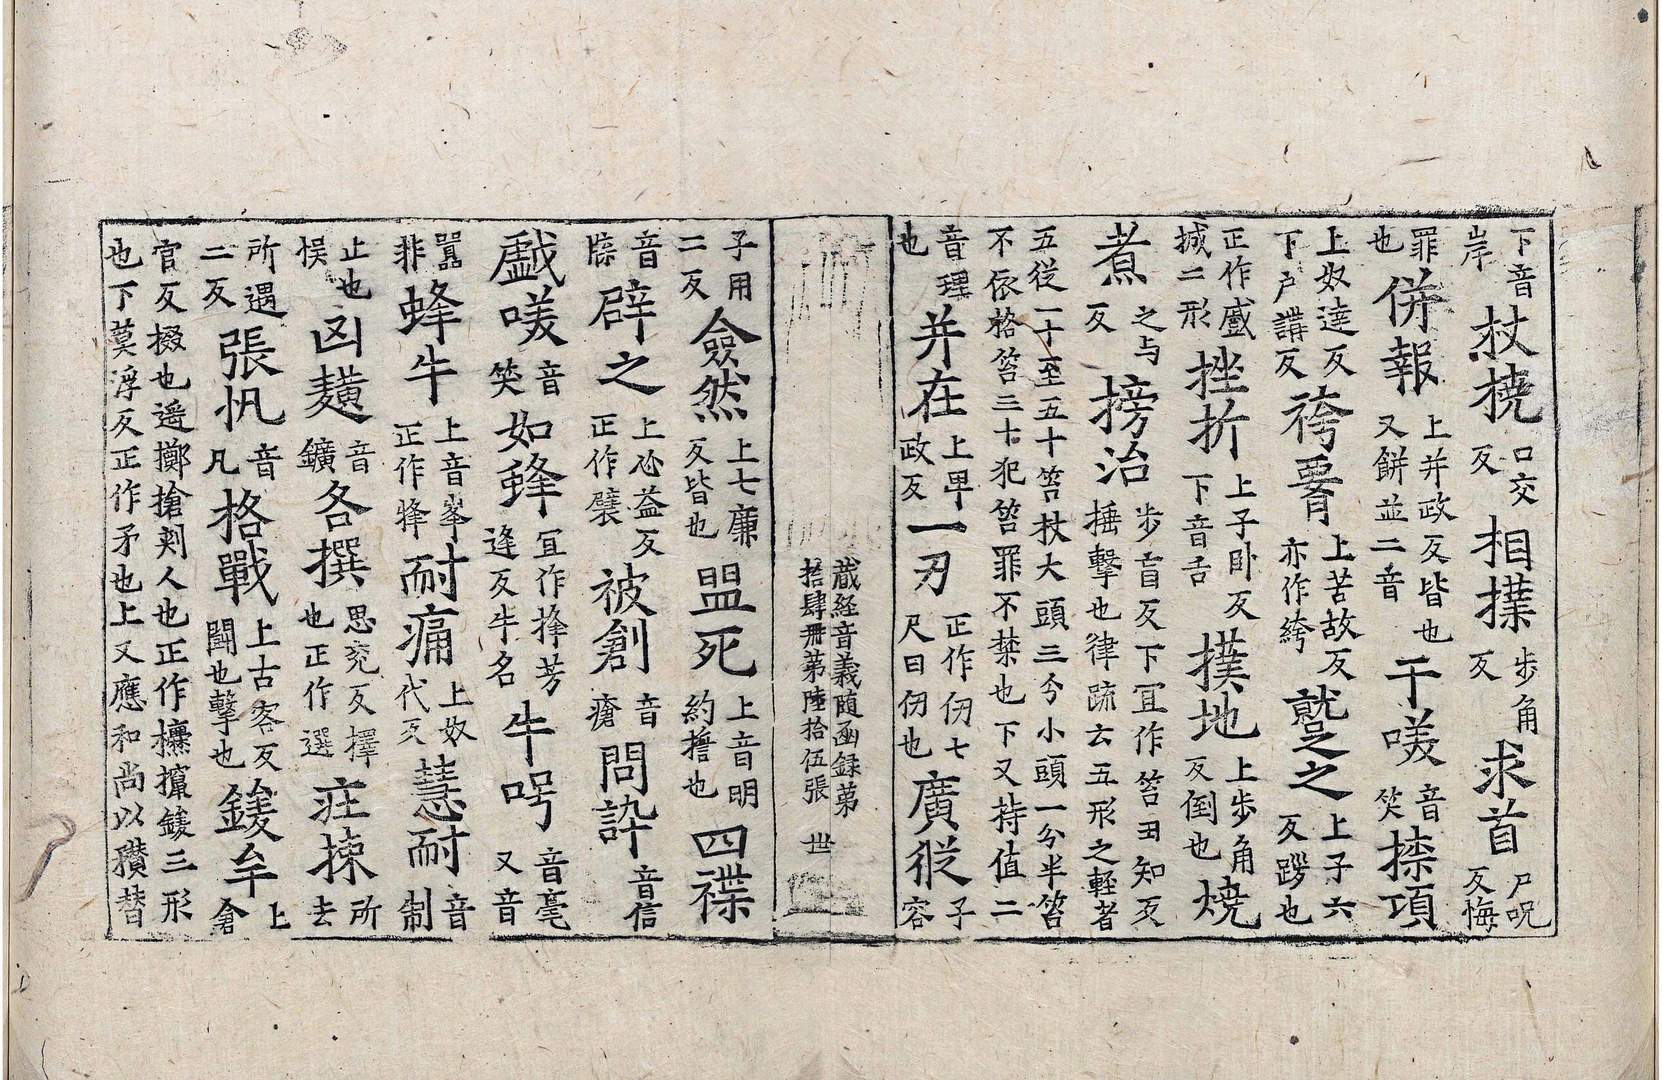 下音岸杖撓口交反相撲步角反求首尸呪反悔
罪也併報上并政反皆也又餠並二音干𠺁音笑㨆項
上奴達反下戶講反袴𦝫上苦故反亦作絝蹵之上子六反蹋也
正作戲㦸二形挫折上子卧反下音舌撲地上步角反倒也燒
煮之与反搒治步盲反下冝作笞丑知反捶擊也律疏云五形之輕者
五從一十至五十笞杖大頭三分小頭一分半笞不依格笞三十犯笞罪不禁也下又持值二
音理也并在上畀政反一刃正作仞七尺曰仞也廣從子容
藏経音義随函録第
拾肆冊第陸拾伍張 世
子用二反僉然上七廉反皆也盟死上音明約誓也四襍
音牒辟之上必益反正作躄被創音瘡問訊音信
戱𠺁音笑如蜂冝作捀芳逢反牛名牛呺音毫又音
囂非蜂牛上音峯正作犎耐痛上奴代反慧耐音制
止也悞凶䵃音鑛各撰思兖反擇也正作選㽵揀所去
所遇二反張帆音凡格戰上古客反鬪也擊也鑀牟上倉
官反掇也遥擲搶刾人也正作欑攛鋑三形也下莫浮反正作矛也上又應和尚以穳替